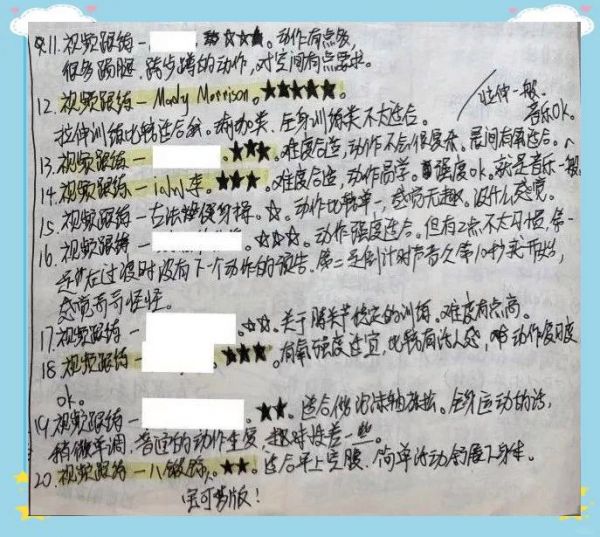 11.视频跟练- ☆☆☆☆。动作有点多,
很多踢腿,跨步蹲的动作,对空间有点要求。
12.视频跟练-Mady Morrison。★★★★★。
拉伸一般,音乐OK。
拉伸训练比较适合我。瑜伽类、全身训练类不太适合。
13.视频跟练- 。★★★。难度合适,动作不会很复杂,居间有氧适合。
14.视频跟练- 。★★★。难度合适,动作易学。强度ok。就是音乐一般
15.视频跟练-古法 健身操。☆。动作比较单一,感觉无趣。没什么感觉。
16.视频跟练- ☆☆☆。动作强度适合。但有2点不太习惯,第一
是 在过渡时没有下一个动作的预告。第二是倒计时声音会第10秒就开始,
感觉奇奇怪怪。
17.视频跟练- ☆☆。关于膝关节稳定的训练。难度有点高。
18.视频跟练- ★★★。有氧强度适宜,比较有活人感,动作复习度
ok。
19.视频跟练- ★★。适合 放松。全身运动的话,
稍微单调,普通的动作重复,趣味性差一些。
20.视频跟练-八段锦。★★。适合早上空腹,简单活动舒展下身体。
宝可梦版!